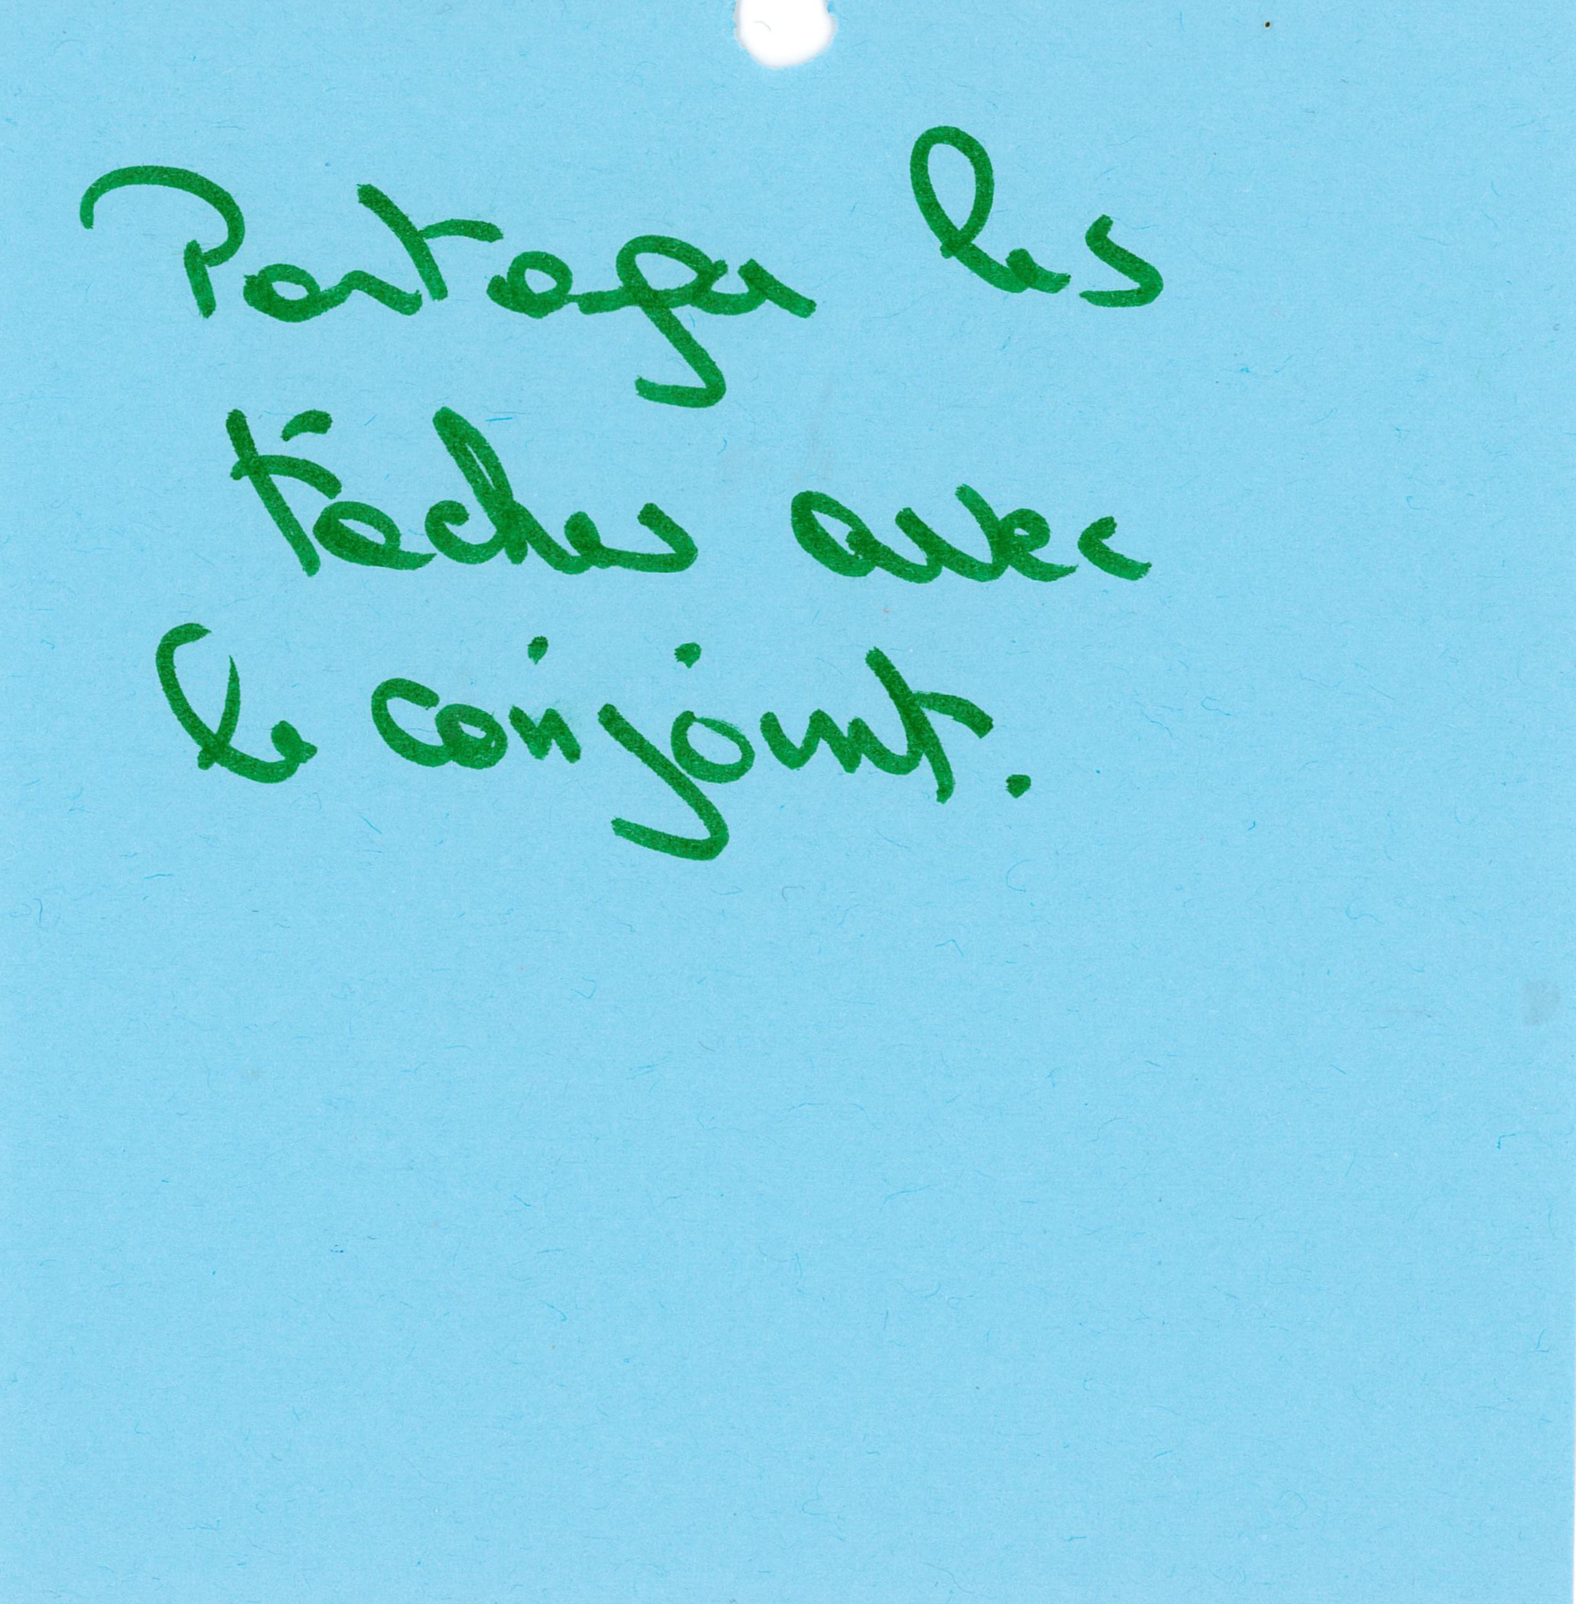 Partager les
tâches avec
le conjoint.